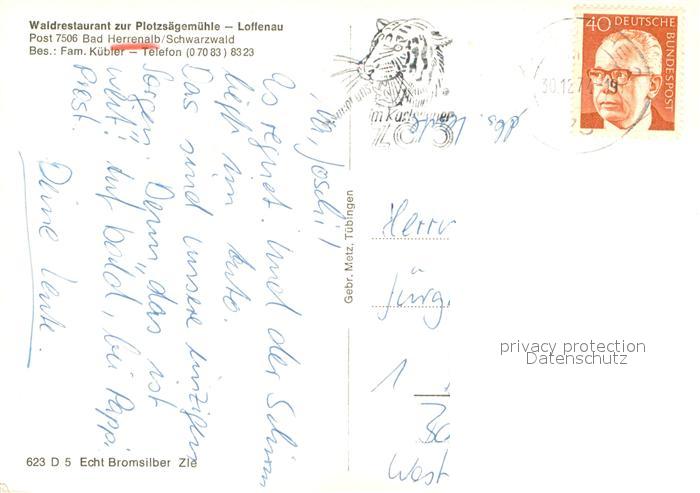 Waldrestaurant zur Plotzsägemühle — Loffenau
Post 7506 Bad Herrenalb/Schwarzwald
Bes.: Fam. Kübler — Telefon (0 70 83) 83 23
Ja, Joschi!
Es regnet. Und der Schirm
liegt im Auto.
Das sind unsere einzigen
Sorgen. Denn "das ist
weit! Auf bald, bei Pappi
Prost.
Deine Leute.
Gebr. Metz, Tübingen
ZOO
40 DEUTSCHE
BUNDESPOST
30.12.7
-19
Herrn
Jürg
1
West
privacy protection
Datenschutz
623 D 5 Echt Bromsilber Zie